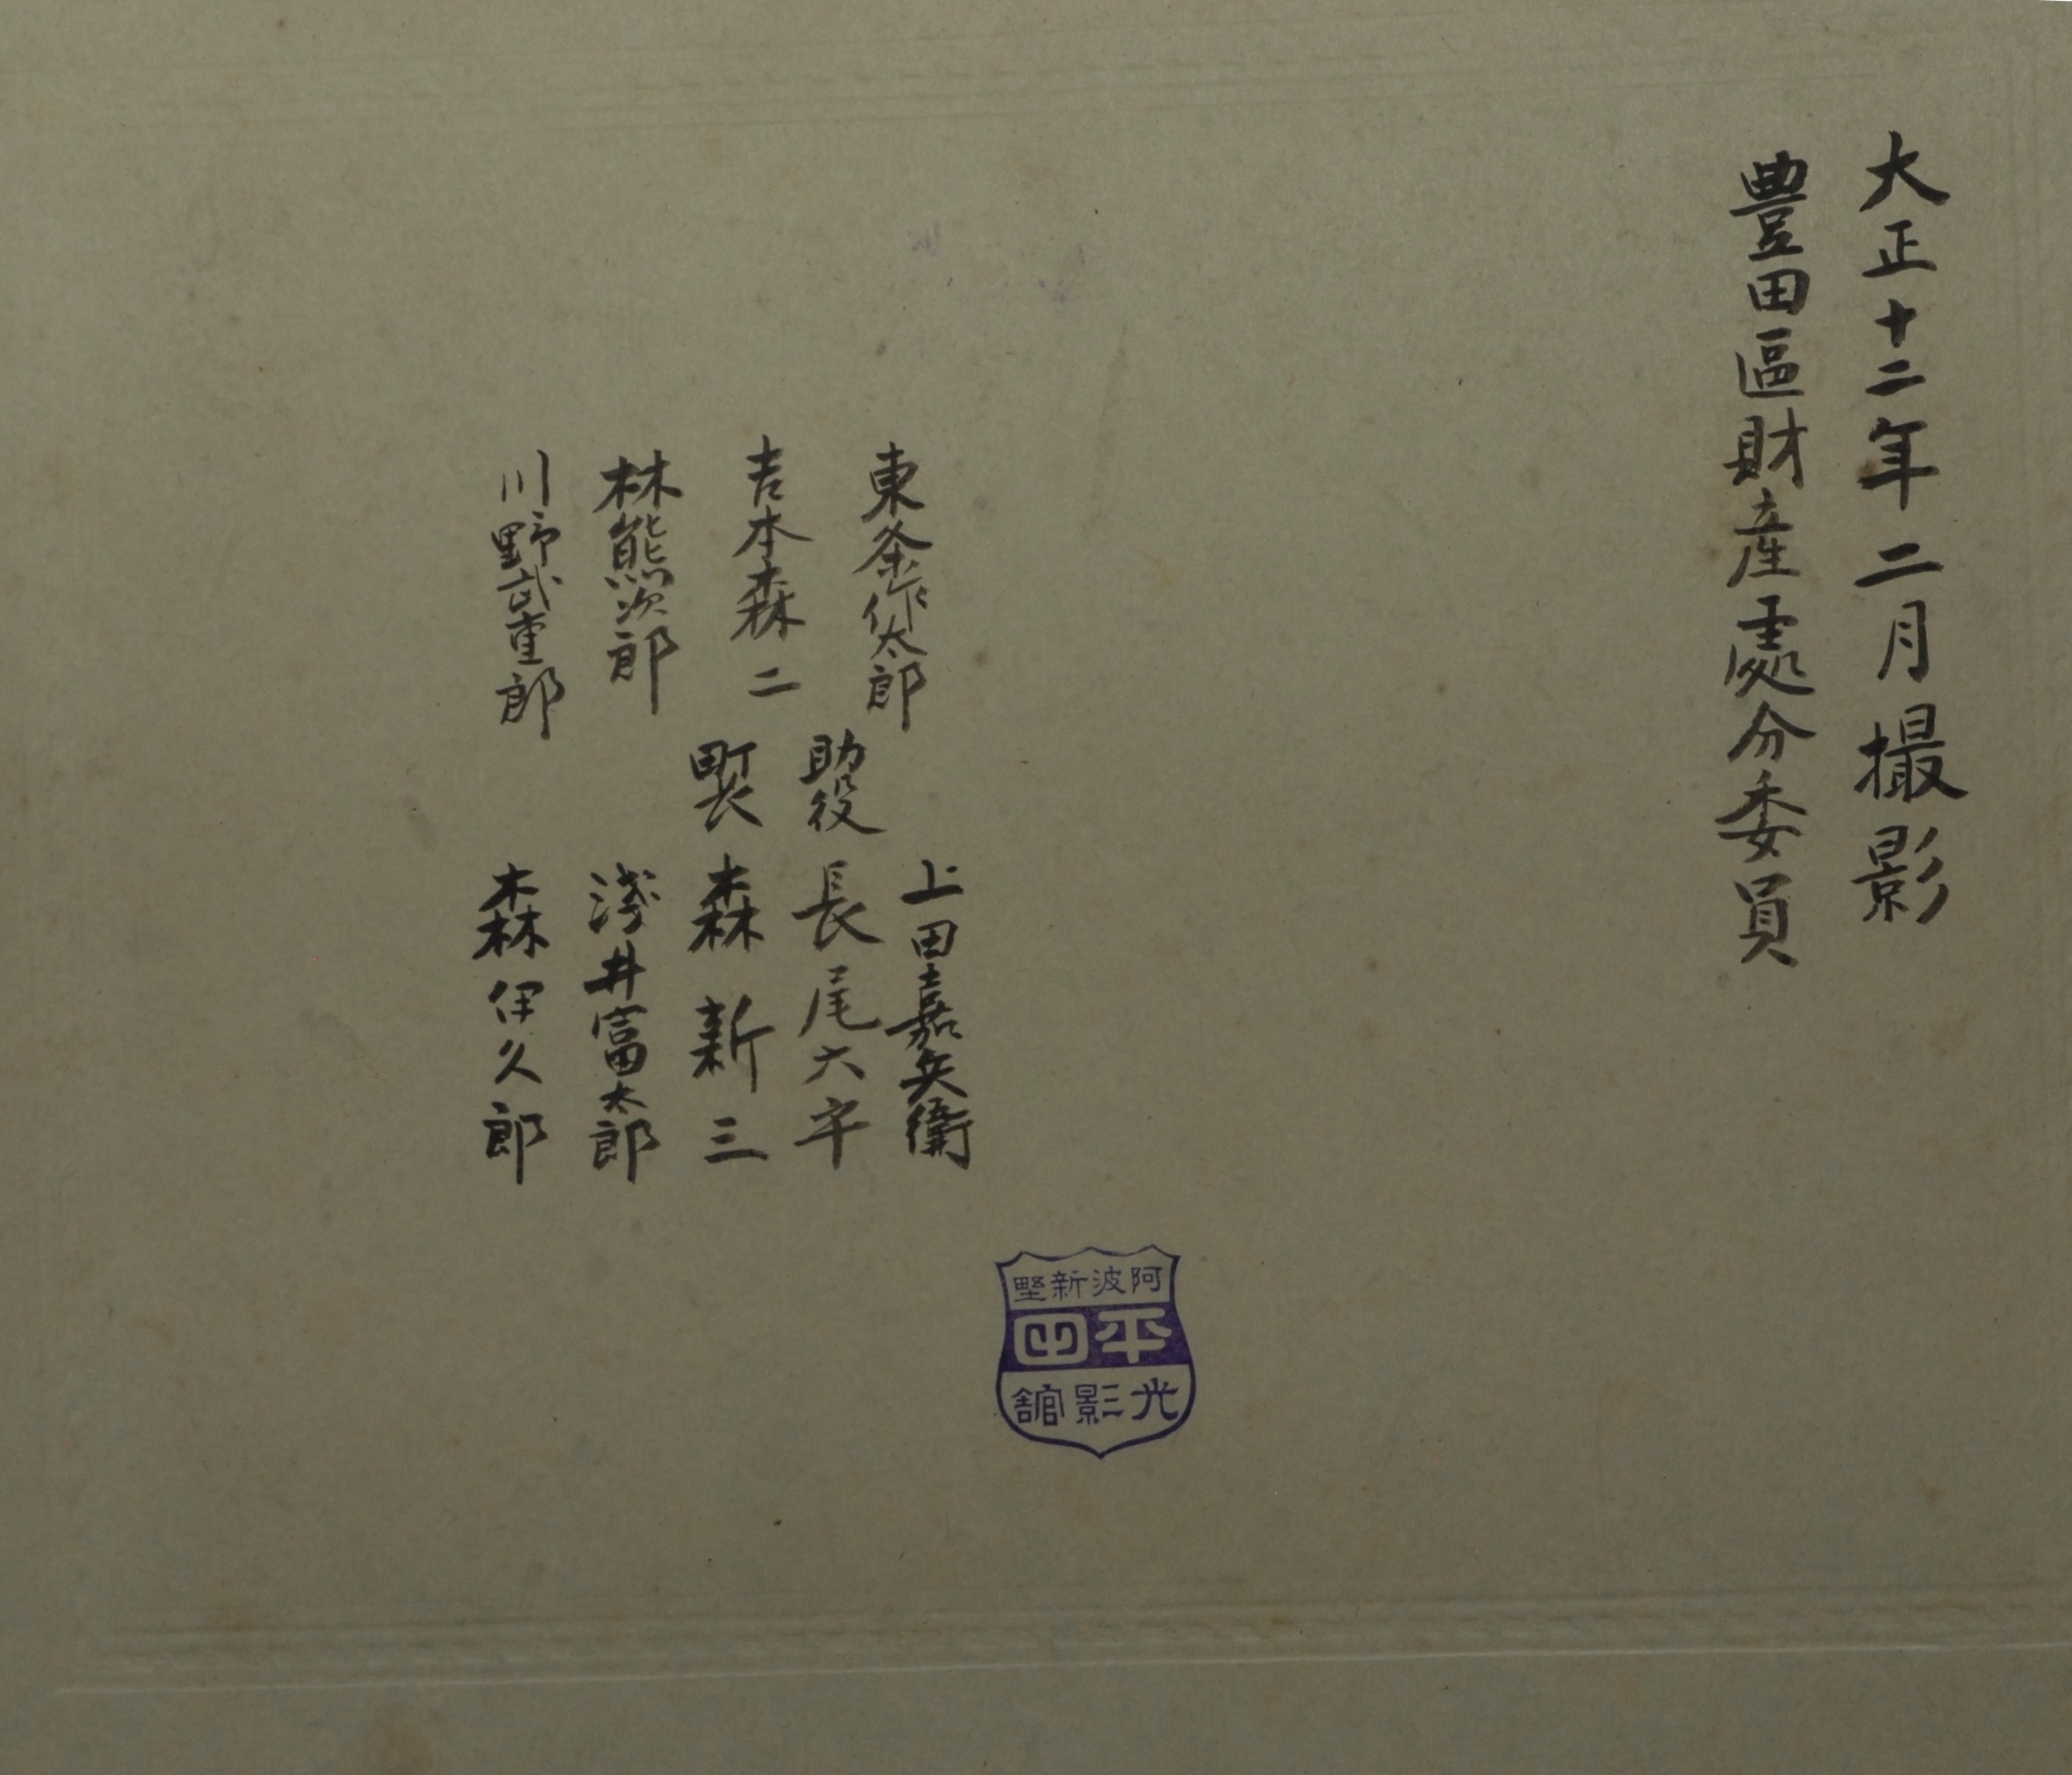 大正十二年二月撮影
豊田區財産處分委員
東条作太郎
吉本森二
林熊次郎
川野武重郎
上田嘉兵衛
助役 長尾六平
町長 森新三
淺井富太郎
森伊久郎
阿波新野
平田
光影館